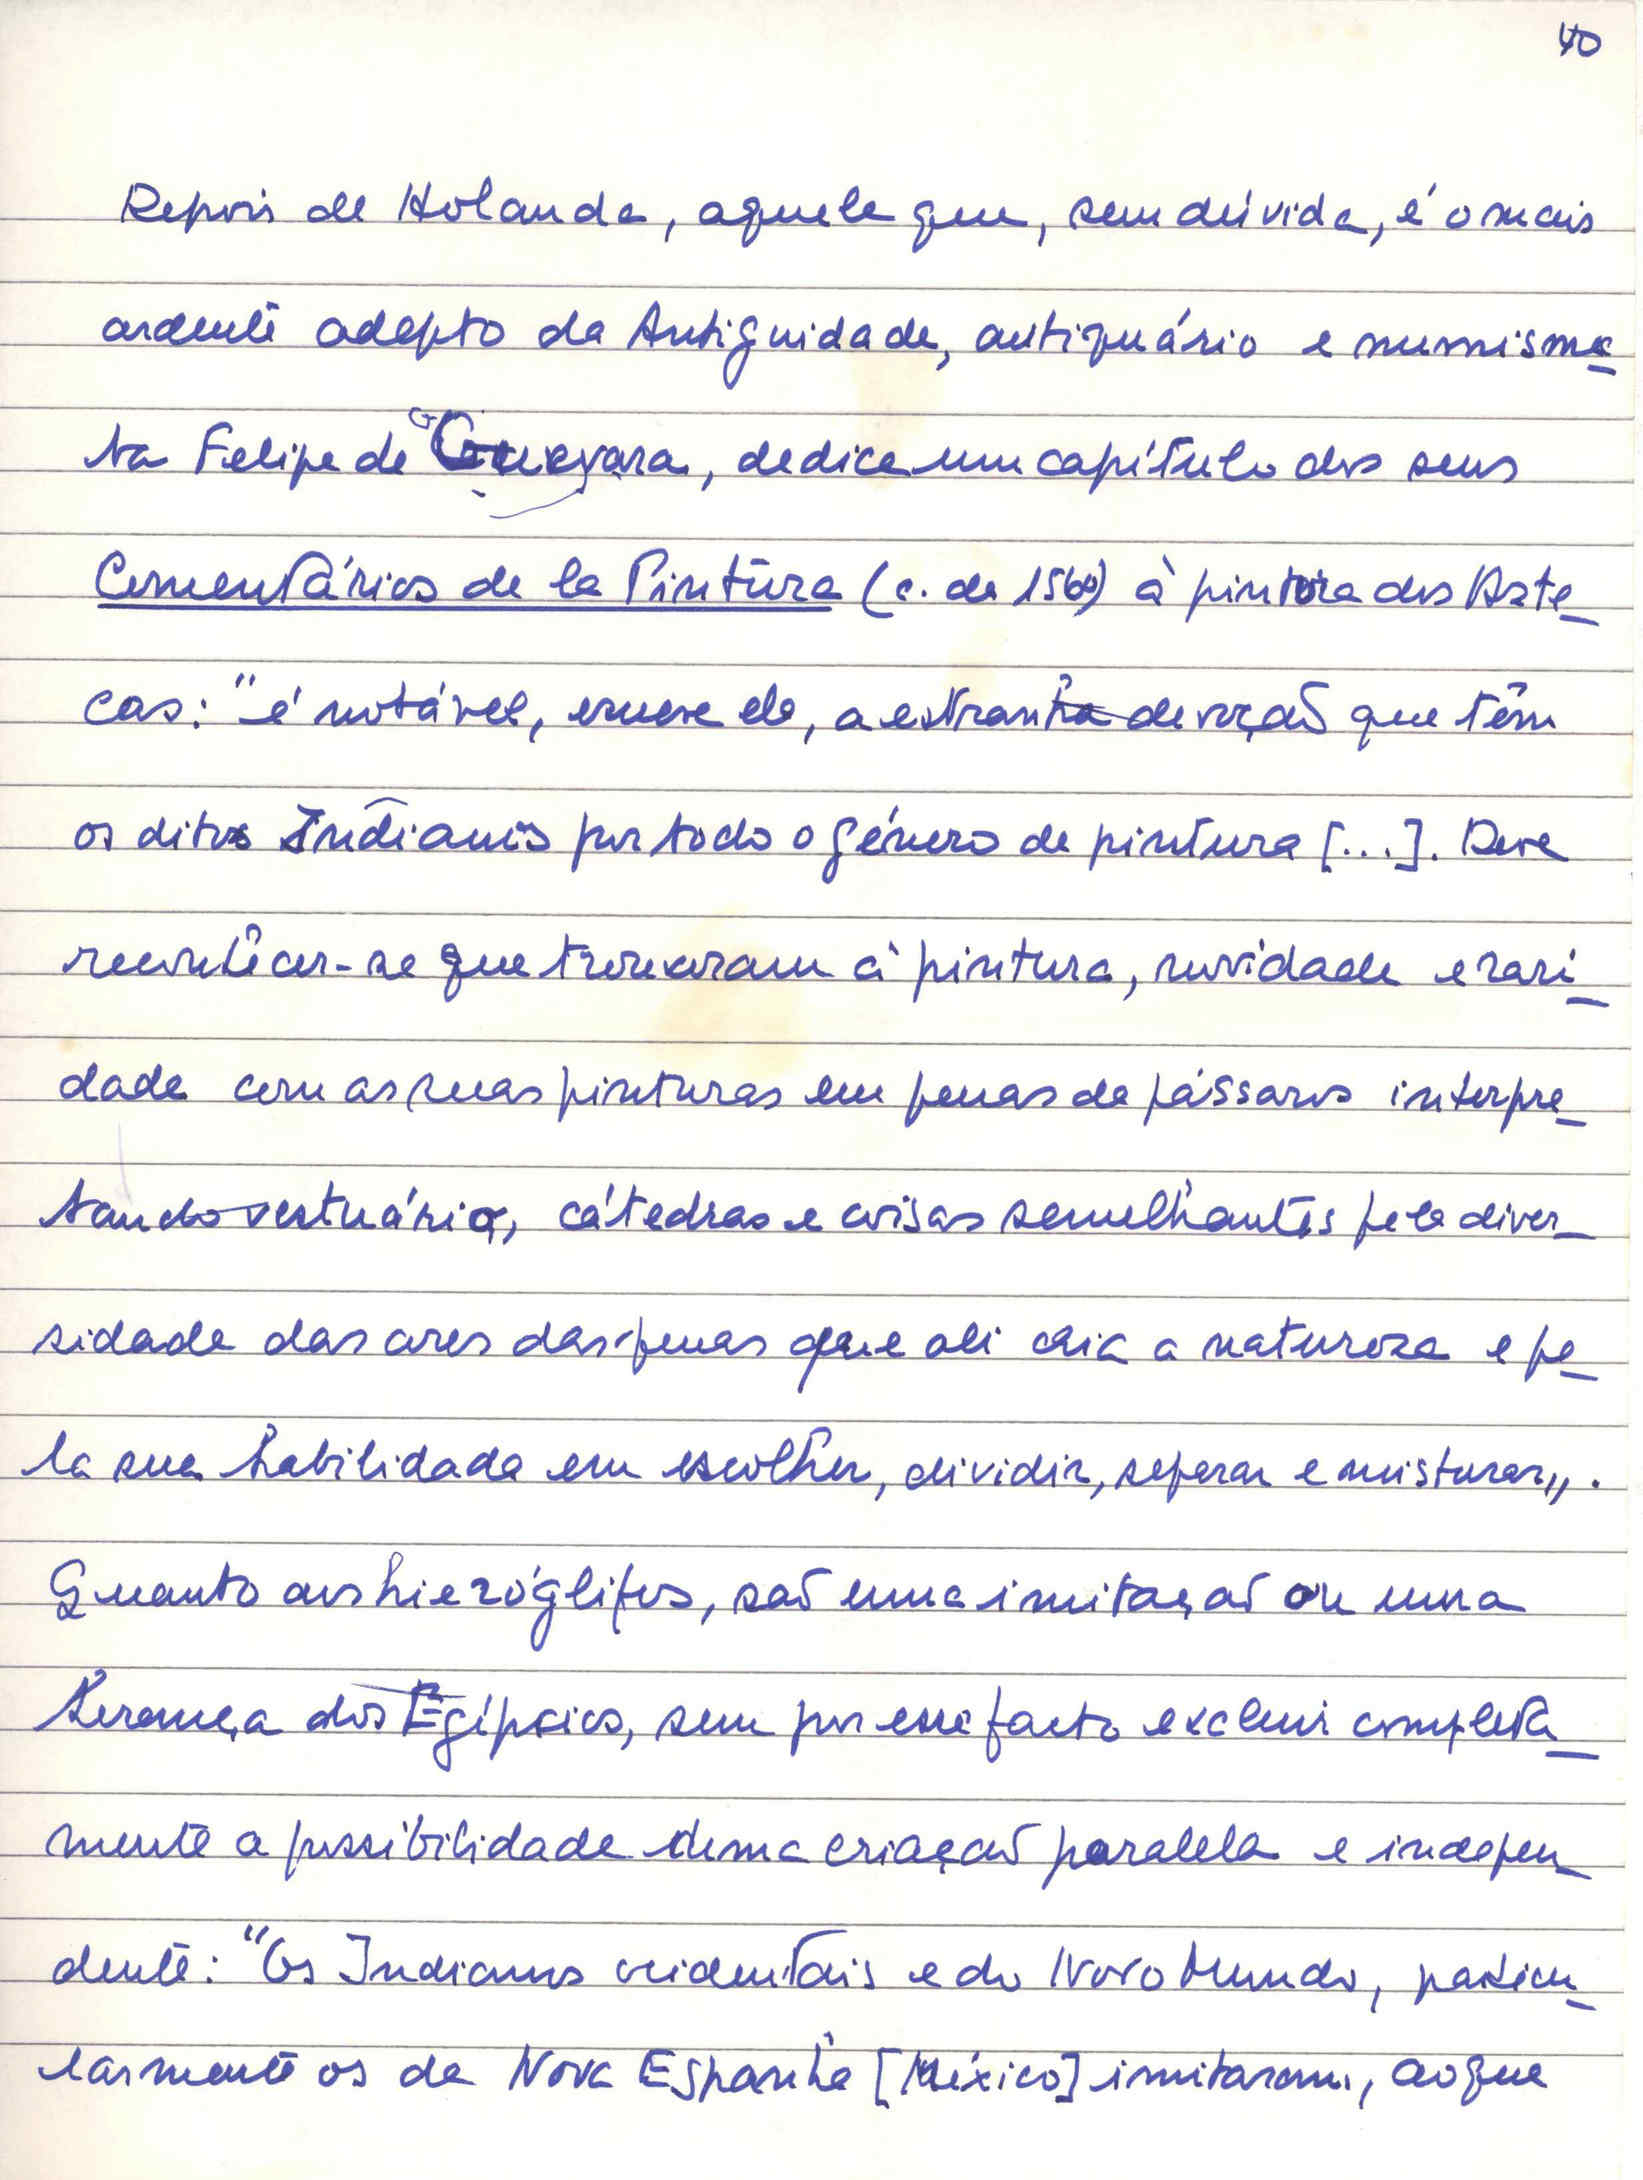 40
Depois de Holanda, aquele que, sem dúvida, é o mais
ardente adepto da Antiguidade, antiquário e numisma-
ta Felipe de Guevara, dedica um capítulo dos seus
Comentários de la Pintura (c. de 1560) à pintura dos Azte-
cas: "é notável, escreve ele, a estranha devoção que têm
os ditos Indianos por todo o género de pintura [...]. Deve
reconhecer-se que trouxeram à pintura, novidade e rari-
dade com as suas pinturas em penas de pássaros interpre-
tando vestuário, cátedras e coisas semelhantes pela diver-
sidade das cores das penas que ali cria a natureza e pe-
la sua habilidade em escolher, dividir, separar e misturar".
Quanto aos hieróglifos, são uma imitação ou uma
herança dos Egípcios, sem por esse facto excluir completa-
mente a possibilidade duma criação paralela e indepen-
dente: "Os Indianos ocidentais e do Novo Mundo, particu-
larmente os da Nova Espanha [México] imitaram, ao que